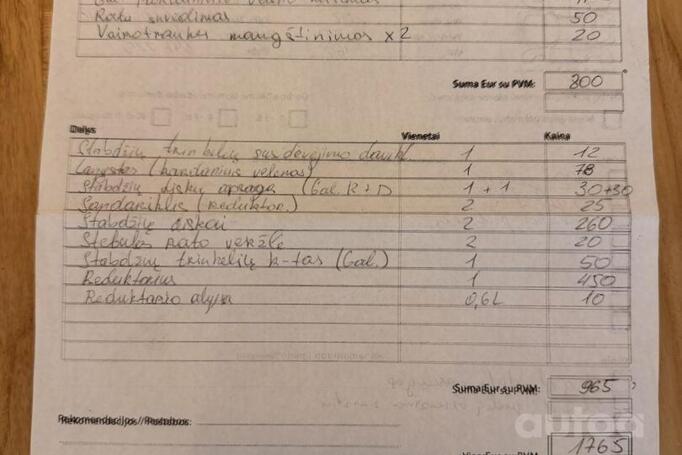 Ratų suvedimas 50
Vairotraukės mangštinimas x2 20
Suma Eur su PVM: 800
Dalys Vienetai Kaina
Stabdžių trinkelių susidėvėjimo davikl. 1 12
(kardaninis velenas) 1 78
Stabdžių diskų apsauga (Gal. K+D 1+1 30+30
Sandariklis (reduktor.) 2 25
Stabdžių diskai 2 260
Stebulės rato veržlė 2 20
Stabdžių trinkelių k-tas (Gal.) 1 50
Reduktorius 1 450
Reduktorio alyva 0,6L 10
Suma Eur su PVM: 965
Rekomendacijos / Pastabos:
autoa
1765